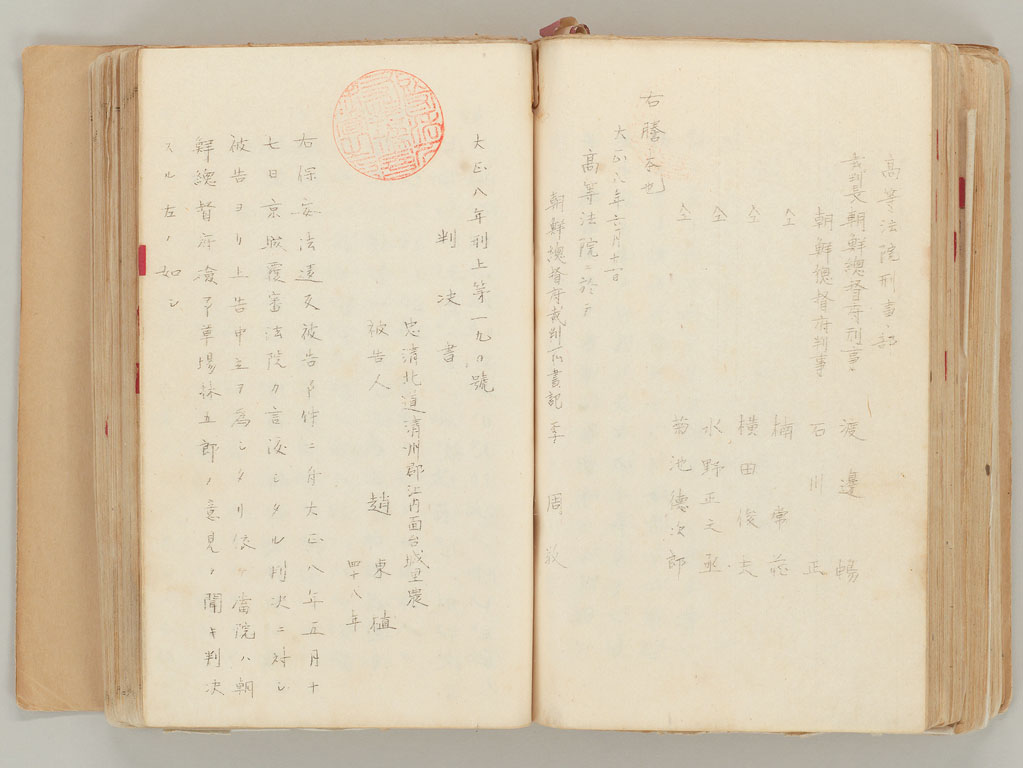 高等法院刑事部
裁判長朝鮮總督府判事 渡邊 暢
朝鮮總督府判事 石川 正
仝 楠 常藏
仝 横田俊夫
仝 水野正之丞
仝 菊池德次郎
右謄本也
大正八年六月十日
高等法院ニ於テ
朝鮮總督府裁判所書記 李 周
大正八年刑上第一九〇號
判決書
忠清北道清州郡江內面台城里農
被告人 趙東植
四十八年
右保安法違反被告事件ニ付大正八年五月十
七日京城覆審法院カ言渡シタル判決ニ對シ
被告ヨリ上告申立ヲ為シタリ依テ當院ハ朝
鮮總督府檢事草場林五郎ノ意見ヲ聞キ判決
スル左ノ如シ